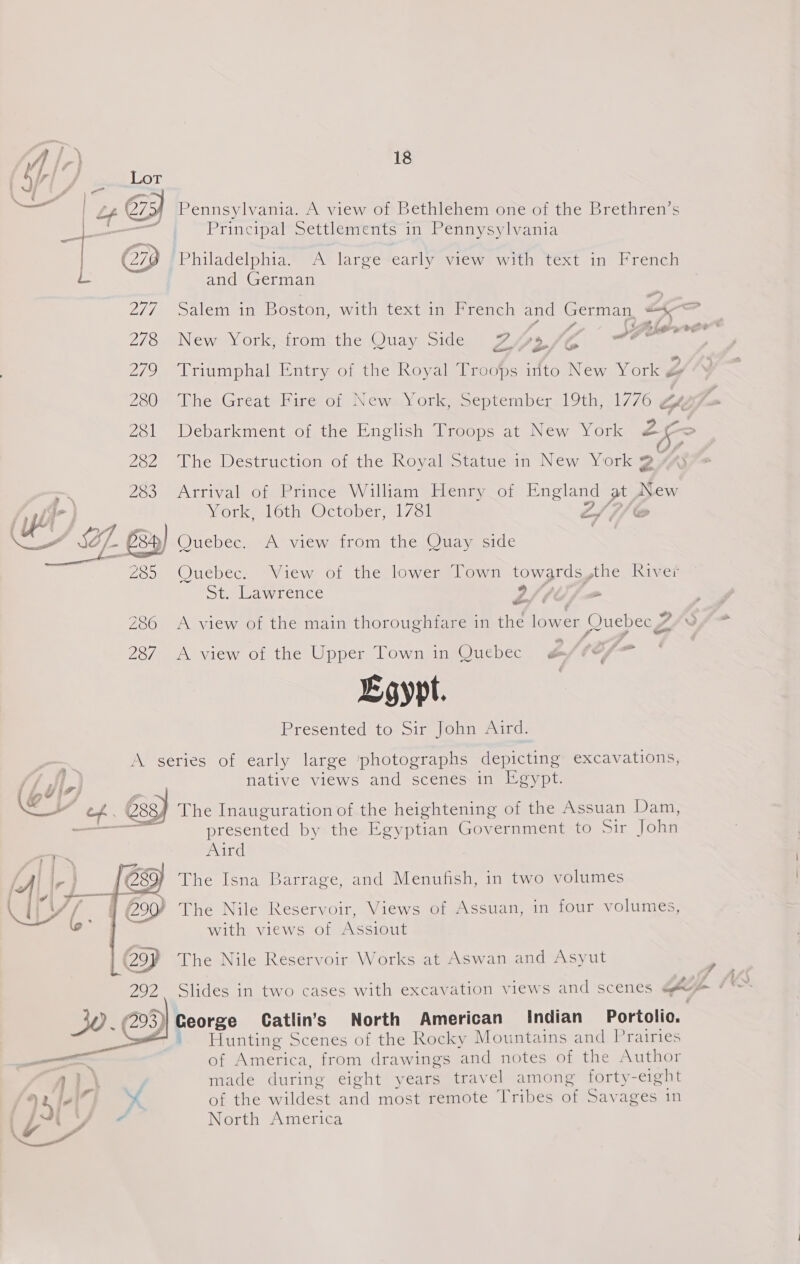 18
Lot
275 Pennsylvania. A view of Bethlehem one of the Brethren's
Principal Settlements in Pennysylvania
276 Philadelphia. A large early view with text in French
and German
277 Salem in Boston, with text in French and German
278 New York, from the Quay Side
279 Triumphal Entry of the Royal Troops into New York
280 The Great Fire of New York, September 19th, 1776
281 Debarkment of the English Troops at New York
282 The Destruction of the Royal Statue in New York
283 Arrival of Prince William Henry of England at New
York, 16th October, 1781
284 Quebec. A view from the Quay side
285 Quebec. View of the lower Town towards the River
St. Lawrence
286 A view of the main thoroughfare in the lower Quebec
287 A view of the Upper Town in Quebec
Egypt.
Presented to Sir John Aird.
A series of early large photographs depicting excavations,
native views and scenes in Egypt.
288 The Inauguration of the heightening of the Assuan Dam,
presented by the Egyptian Government to Sir John
Aird
289 The Isna Barrage, and Menufish, in two volumes
290 The Nile Reservoir, Views of Assuan, in four volumes,
with views of Assiout
291 The Nile Reservoir Works at Aswan and Asyut
292 Slides in two cases with excavation views and scenes
293 George Catlin's North American Indian Portolio.
Hunting Scenes of the Rocky Mountains and Prairies
of America, from drawings and notes of the Author
made during eight years travel among forty-eight
of the wildest and most remote Tribes of Savages in
North America